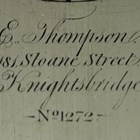 E. Thompson
181 Sloane Street
Knightsbridge
No 1272